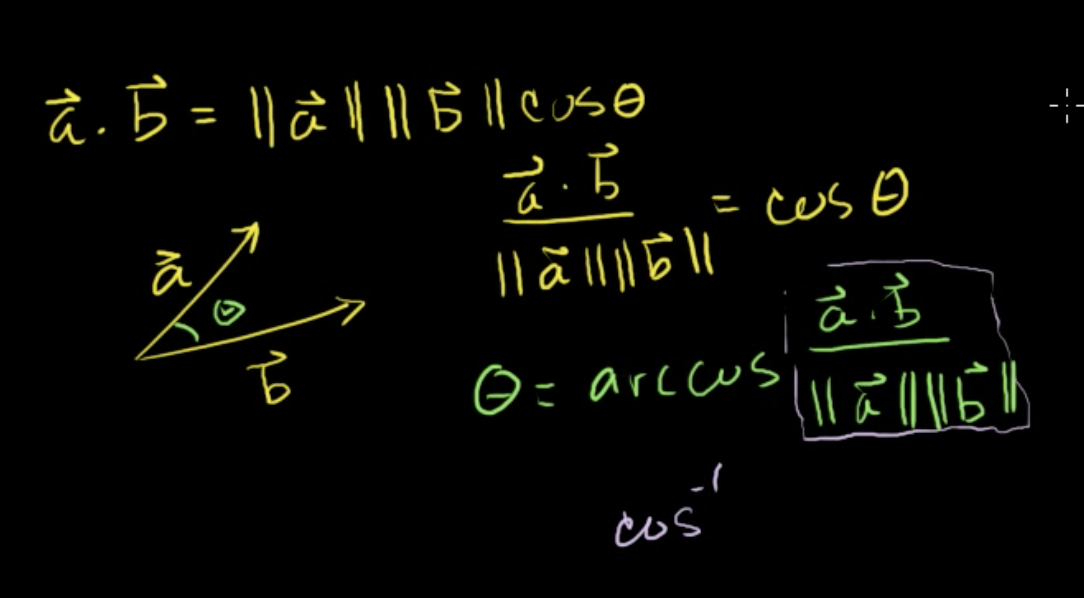 a⃗ · b⃗ = ‖a⃗‖ ‖b⃗‖ cos θ
a⃗ · b⃗ / ‖a⃗‖‖b⃗‖ = cos θ
a⃗
θ
b⃗
θ = arccos a⃗ · b⃗ / ‖a⃗‖‖b⃗‖
cos⁻¹